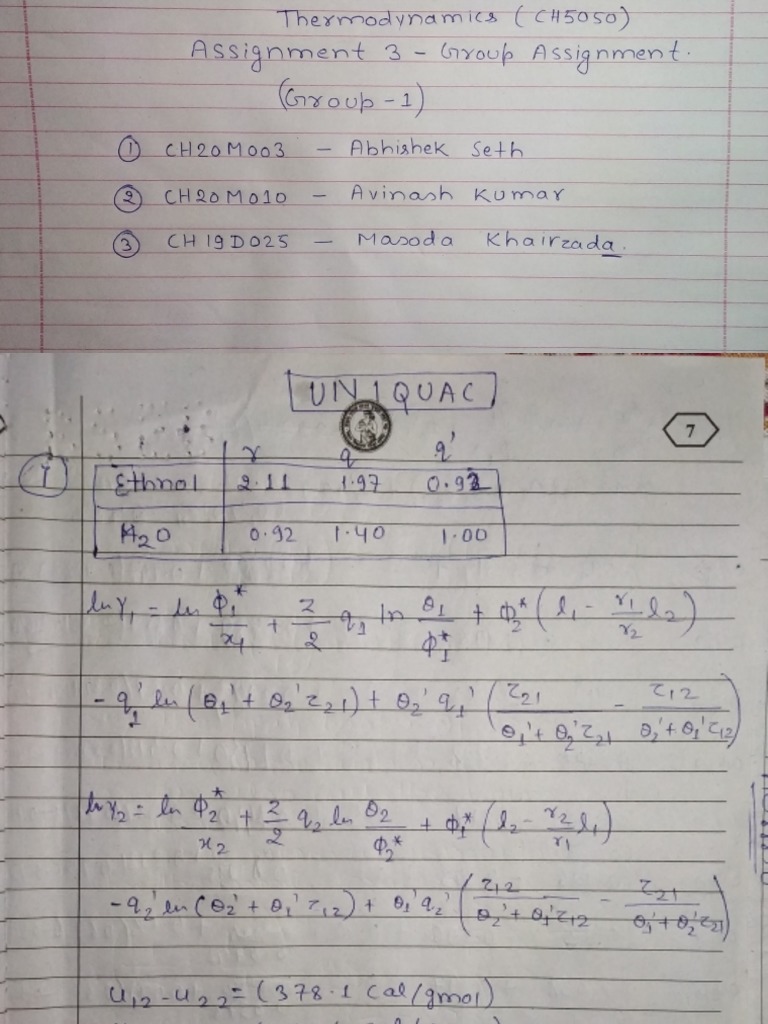 Thermodynamics (CH5050)
Assignment 3 - Group Assignment.
(Group-1)
① CH20M003 - Abhishek Seth
② CH20M010 - Avinash Kumar
③ CH19D025 - Masoda Khairzada.
UNIQUAC
7
r q q'
① Ethnol 2.11 1.97 0.92
H₂O 0.92 1.40 1.00
ln γ₁ = ln Φ₁*/x₁ + z/2 q₁ ln θ₁/Φ₁* + Φ₂* (l₁ - r₁/r₂ l₂)
- q₁' ln (θ₁' + θ₂' τ₂₁) + θ₂' q₁' (τ₂₁/(θ₁' + θ₂' τ₂₁) - τ₁₂/(θ₂' + θ₁' τ₁₂))
ln γ₂ = ln Φ₂*/x₂ + z/2 q₂ ln θ₂/Φ₂* + Φ₁* (l₂ - r₂/r₁ l₁)
- q₂' ln (θ₂' + θ₁' τ₁₂) + θ₁' q₂' (τ₁₂/(θ₂' + θ₁' τ₁₂) - τ₂₁/(θ₁' + θ₂' τ₂₁))
u₁₂ - u₂₂ = (378.1 Cal/gmol)